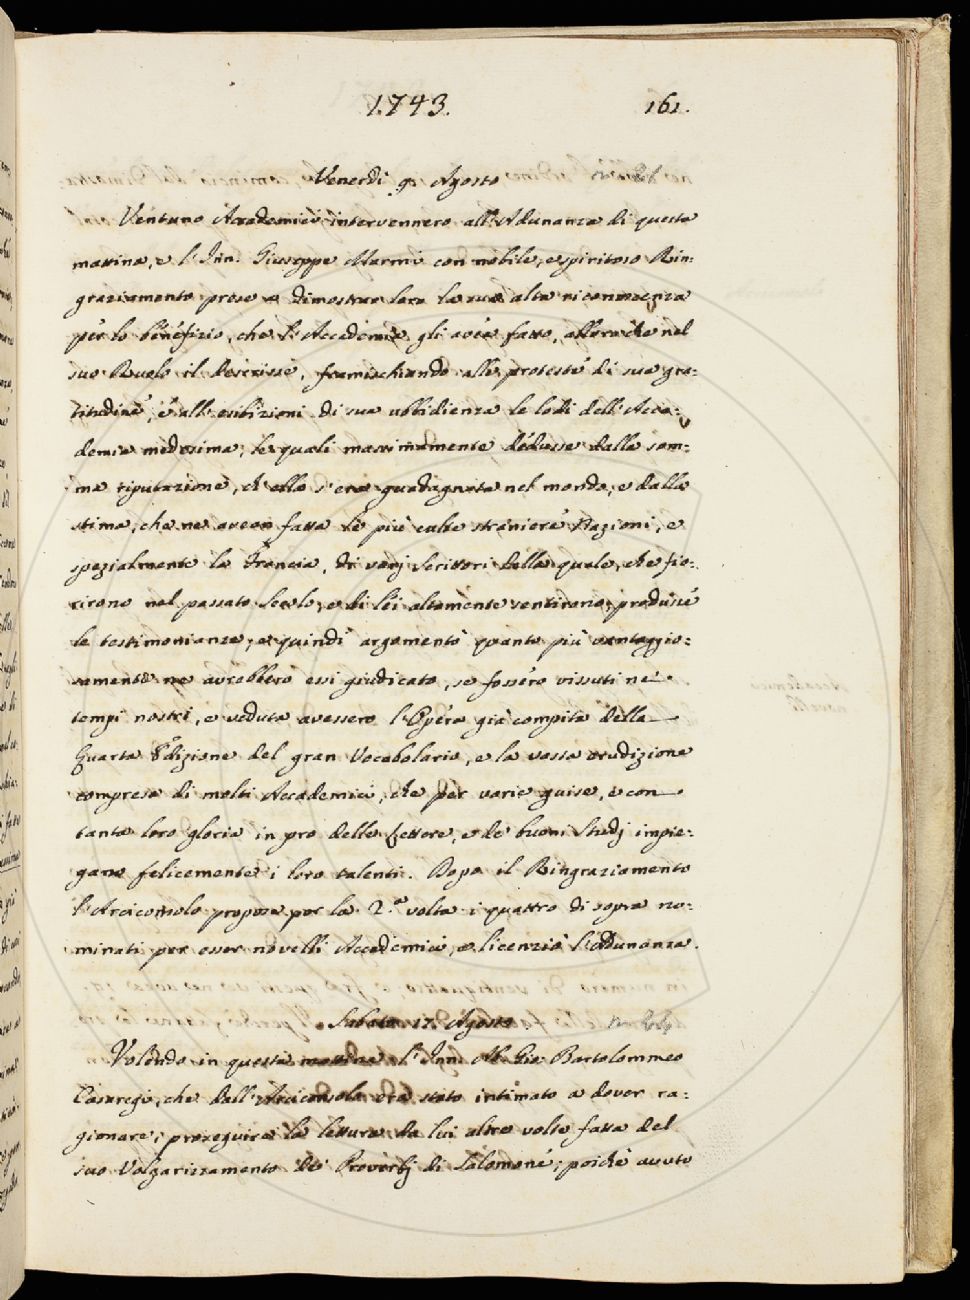 1743.
161.
Venerdì 9. Agosto
Ventuno Accademici intervennero all'Adunanza di questa
mattina, e l'Inn. Giuseppe Marmi con nobile, e spiritoso Rin:
graziamento prese a dimostrar loro la sua alta riconoscenza
per lo benefizio, che l'Accademia gli avea fatto, allora che nel
suo Ruolo il descrisse, framischiando alle proteste di sua gra:
titudine, e all'esibizioni di sua ubbidienza le lodi dell'Acca:
demia medesima; le quali massimamente dedusse dalla som:
ma riputazione, ch'ella s'era guadagnata nel mondo, e dalla
stima, che ne avean fatta le più culte straniere Nazioni, e
spezialmente la Francia, di varj Scrittori della quale, che fio:
rirono nel passato Secolo, e di lei altamente sentirono, produsse
le testimonianze; e quindi argomentò quanto più vantaggio:
samente ne avrebbero essi giudicato, se fossero vissuti ne'
tempi nostri, e veduta avessero l'Opera già compita della
Quarta Edizione del gran Vocabolario, e la vasta erudizione
compresa di molti Accademici, che per varie guise, e con
tanta loro gloria in pro delle Lettere, e de' buoni Studj impie:
gano felicemente i loro talenti. Dopo il Ringraziamento
l'Arciconsolo propose per la 2.a volta i quattro di sopra no:
minati per esser novelli Accademici, e licenziò l'Adunanza.
Sabato 17. Agosto
Volendo in questa mattina l'Inn. Ab. Gio: Bartolommeo
Casaregi, che dall'Arciconsolo era stato intimato a dover ra:
gionare, proseguire la lettura da lui altre volte fatta del
suo Volgarizzamento de' Proverbj di Salomone; poichè avuto